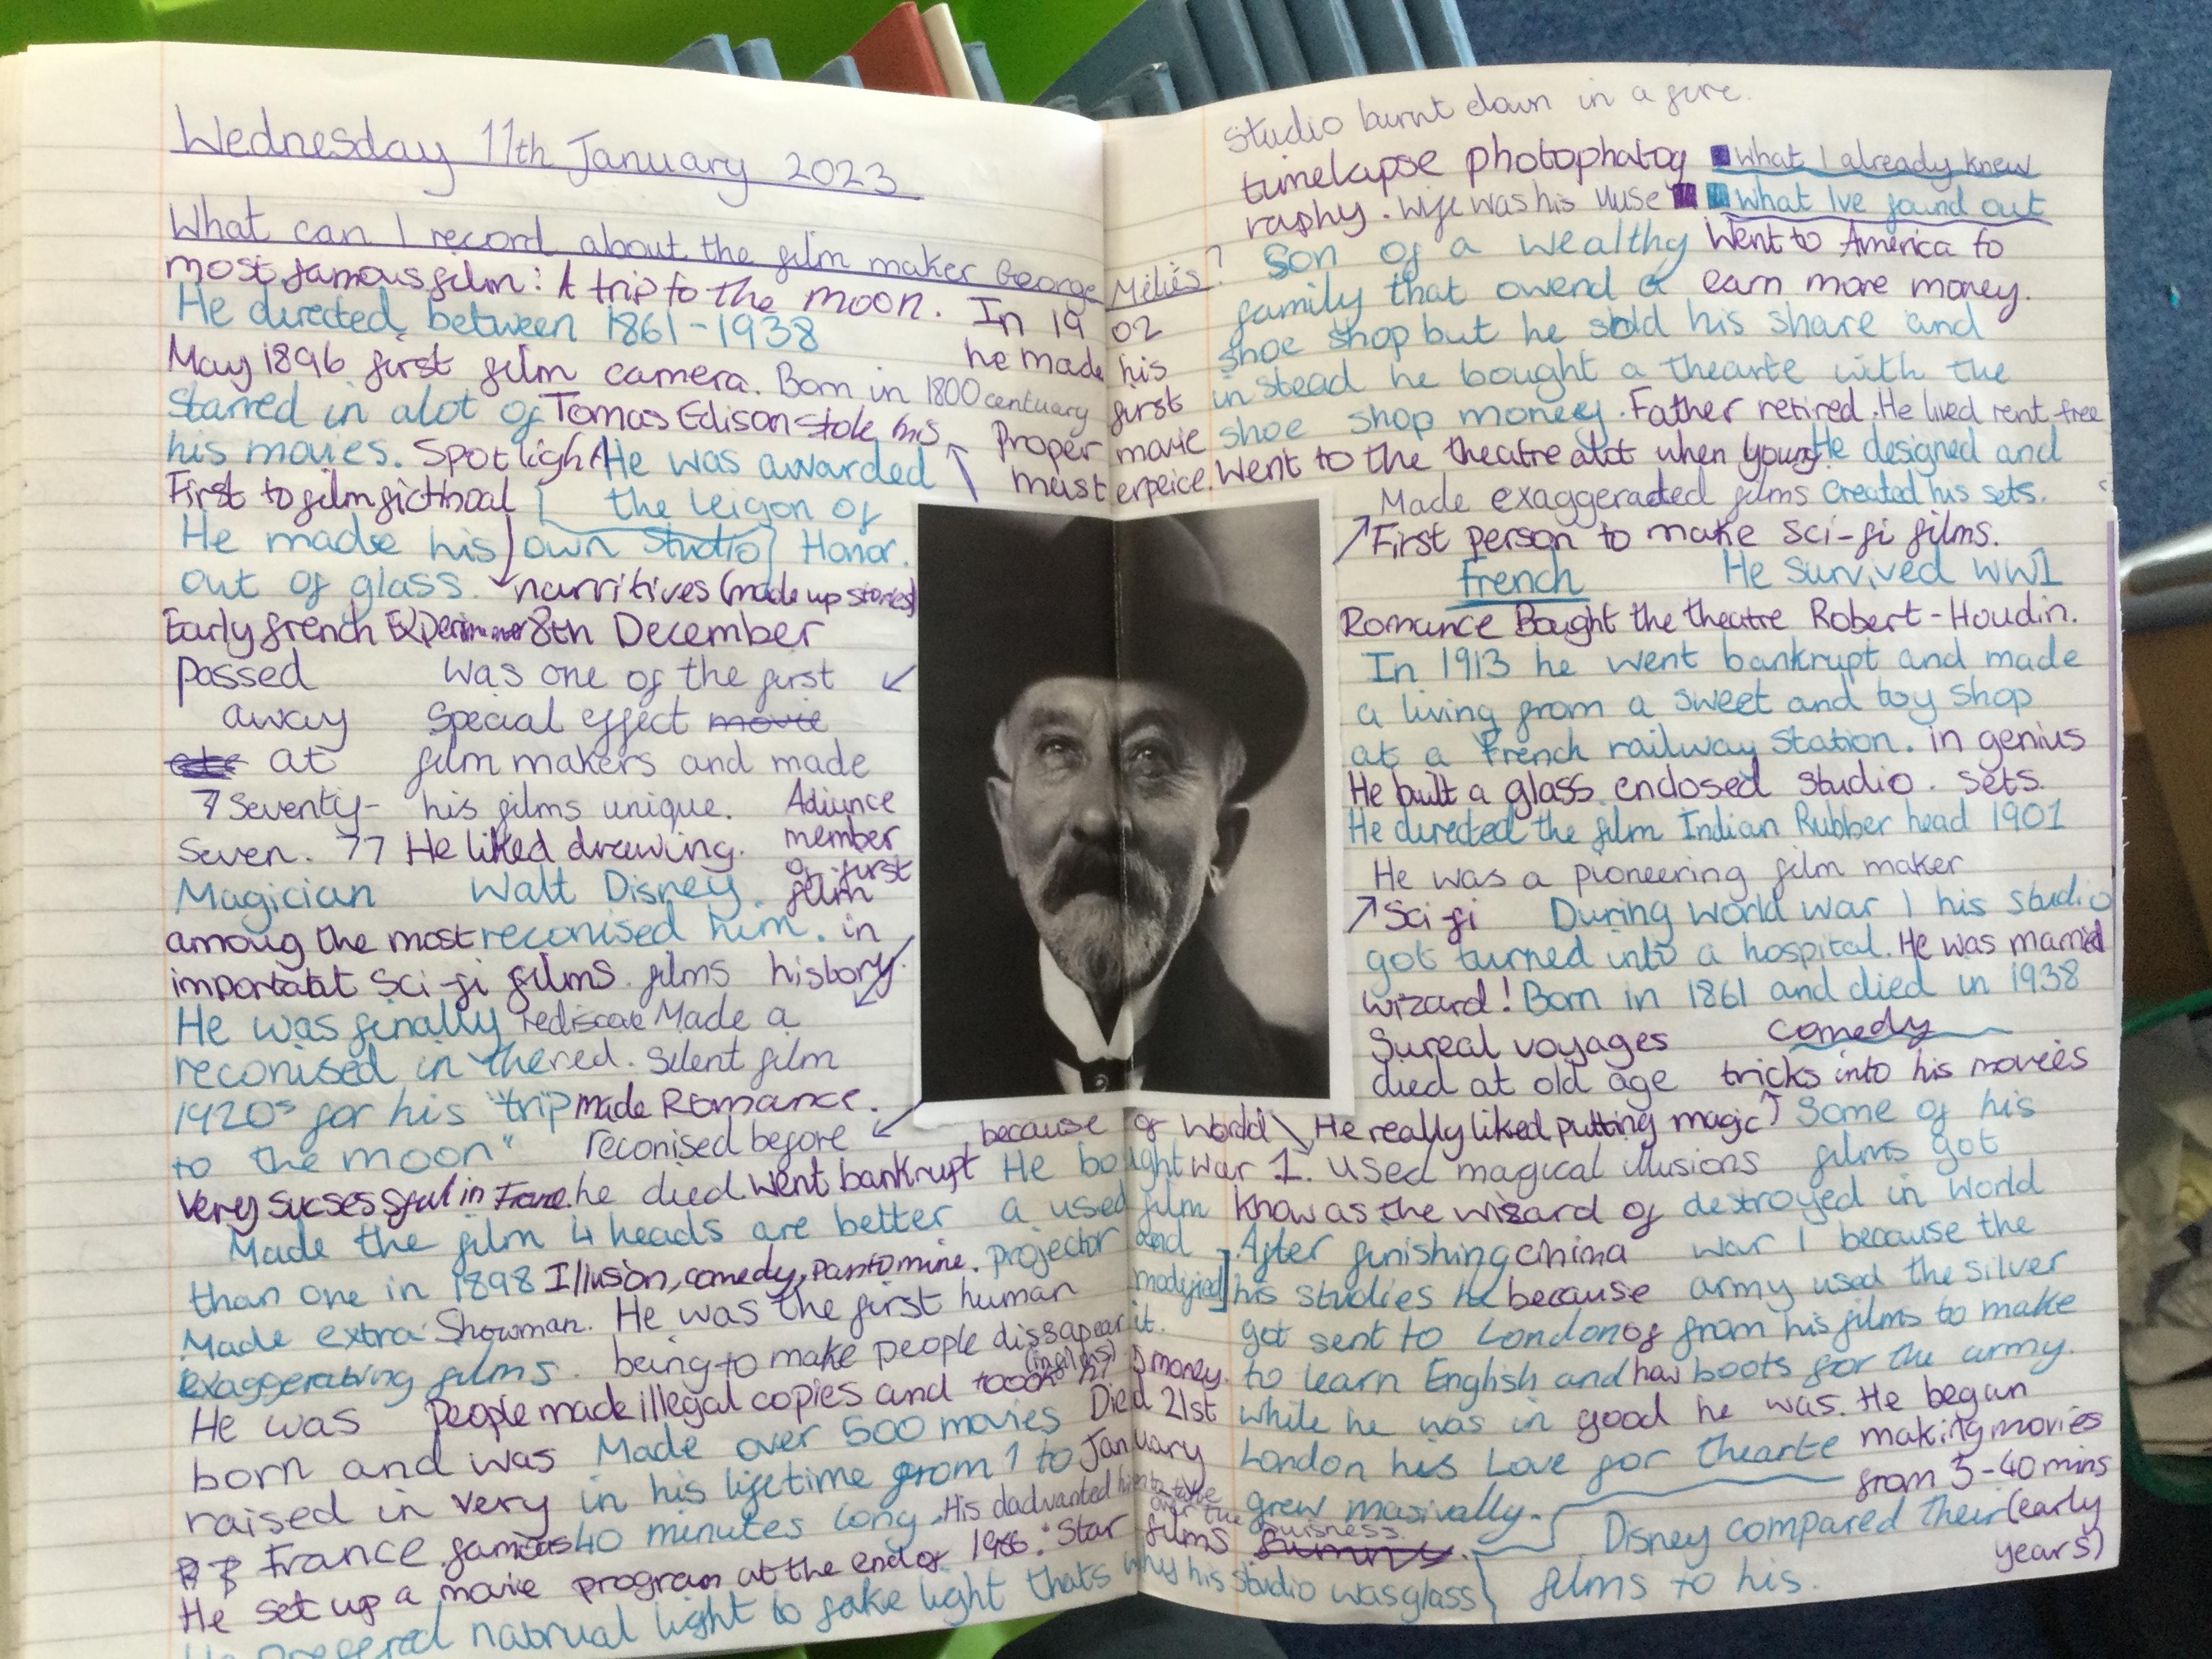 Wednesday 11th January 2023
What can I record about the film maker George Méliés?
most famous film: A trip to the moon. In 1902
He directed between 1861-1938
he made his
May 1896 first film camera. Born in 1800 centuary first
Starred in alot of Tomas Edison stole his
Proper movie
his movies. Spotlight He was awarded
must erpeice.
First to film fictinoal the Leigon of
He made his own studio Honor.
out of glass. narritives (made up stories)
Early french 8th December
passed Was one of the first
away Special effect movie
at film makers and made
7 Seventy- his films unique. Adiunce
Seven. 77 He liked drawing. member
of first
Magician Walt Disney. film
amoug the most reconised him. in
importatat Sci-fi films. films history.
He was finally rediscove Made a
reconised in the red. Silent film
1920s for his "trip made Romance.
to the moon" reconised before
because of World
Very sucsessful in France. he died Went bankrupt He bought War 1.
Made the film 4 heads are better a used film
than one in 1898 Illusion, comedy, pantomine. projector and
modified
Made extra Showman. He was the first human
it.
exaggerating films. being to make people dissapear
(in films)
He was People made illegal copies and toook his money.
born and was Made over 500 movies Died 21st
raised in very in his lifetime from 1 to January
France famous 40 minutes long. His dad wanted him to take
over the buisness.
He set up a movie program at the end of Star films
He prefered natrual light to fake light thats why his studio was glass
Studio burnt down in a fire.
timelapse photophatog
raphy. wife was his Muse
What I already knew
What Ive found out
Son of a wealthy Went to America to
family that owend a earn more money.
shoe shop but he sold his share and
instead he bought a thearte with the
shoe shop money. Father retired. He lived rent free
Went to the theatre alot when young He designed and
Made exaggeracted films Created his sets.
First person to make sci-fi films.
French He survived WW1
Romance Bought the theatre Robert-Houdin.
In 1913 he went bankrupt and made
a living from a sweet and toy shop
at a French railway station. in genius
He built a glass enclosed studio. Sets.
He directed the film Indian Rubber head 1901
He was a pioneering film maker
Sci-fi During World War 1 his studio
got turned into a hospital. He was married
wizard! Born in 1861 and died in 1938
Sureal voyages comedy
died at old age tricks into his movies
He really liked putting magic Some of his
used magical illusions films got
know as the wizard of destroyed in World
After finishing china War 1 because the
his studies he because army used the silver
got sent to London of from his films to make
to learn English and how boots for the army.
while he was in good he was. He began
London his Love for thearte making movies
from 5-40 mins
grew masivally.
(early
years)
Disney compared their
films to his.